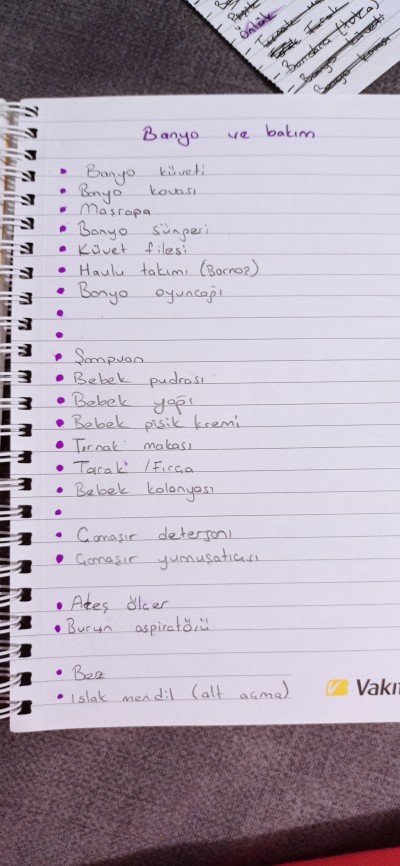 Önlük
Bandana
Banyo ve bakım
• Banyo küveti
• Banyo kovası
• Maşrapa
• Banyo süngeri
• Küvet filesi
• Havlu takımı (Bornoz)
• Banyo oyuncağı
•
•
• Şampuan
• Bebek pudrası
• Bebek yağı
• Bebek pişik kremi
• Tırnak makası
• Tarak /Fırça
• Bebek kolonyası
•
• Çamaşır deterjanı
• Çamaşır yumuşatıcısı
• Ateş ölçer
• Burun aspiratörü
• Bez
• Islak mendil (alt açma)
Vakı